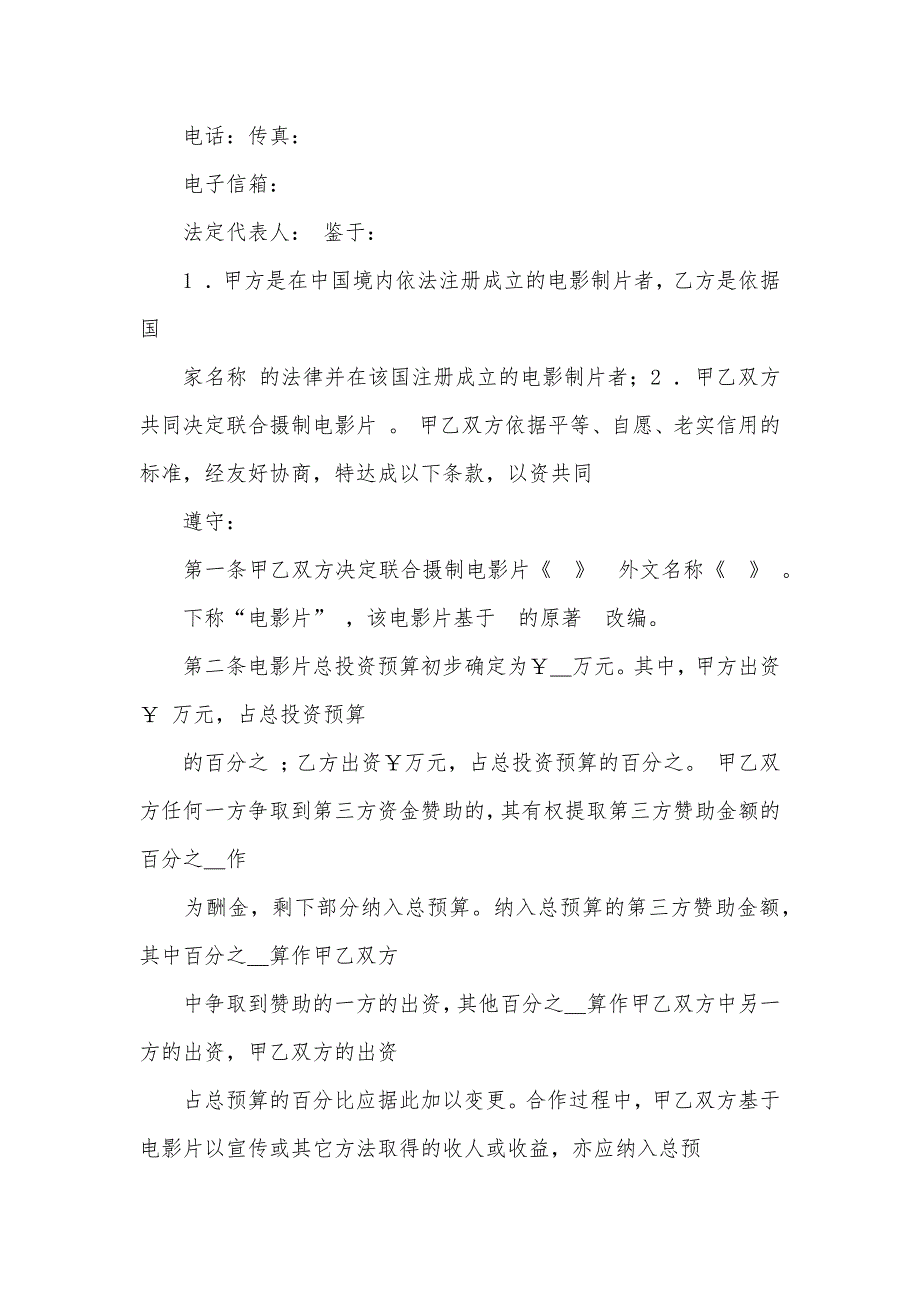 电话：传真：
电子信箱：
法定代表人： 鉴于：
1 ．甲方是在中国境内依法注册成立的电影制片者，乙方是依据
国
家名称 的法律并在该国注册成立的电影制片者；2 ．甲乙双方
共同决定联合摄制电影片 。 甲乙双方依据平等、自愿、老实信用的
标准，经友好协商，特达成以下条款，以资共同
遵守：
第一条甲乙双方决定联合摄制电影片《 》 外文名称《 》 。
下称“电影片” ，该电影片基于 的原著 改编。
第二条电影片总投资预算初步确定为￥__万元。其中，甲方出资
￥ 万元，占总投资预算
的百分之 ；乙方出资￥万元，占总投资预算的百分之。 甲乙双
方任何一方争取到第三方资金赞助的，其有权提取第三方赞助金额的
百分之__作
为酬金，剩下部分纳入总预算。纳入总预算的第三方赞助金额，
其中百分之__算作甲乙双方
中争取到赞助的一方的出资，其他百分之__算作甲乙双方中另一
方的出资，甲乙双方的出资
占总预算的百分比应据此加以变更。合作过程中，甲乙双方基于
电影片以宣传或其它方法取得的收人或收益，亦应纳入总预